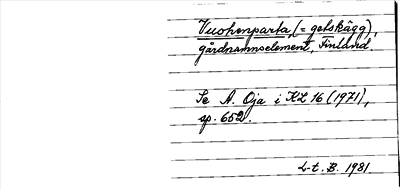 Vuohenparta (= getskägg),
gårdnamnselement, Finland.
Se A. Oja i KL 16 (1971),
sp. 652.
L-t. B. 1981.